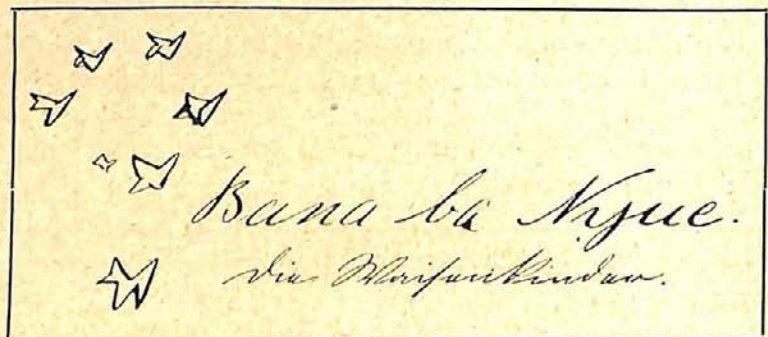 Bana ba Nyue.
Die Waisenkinder.